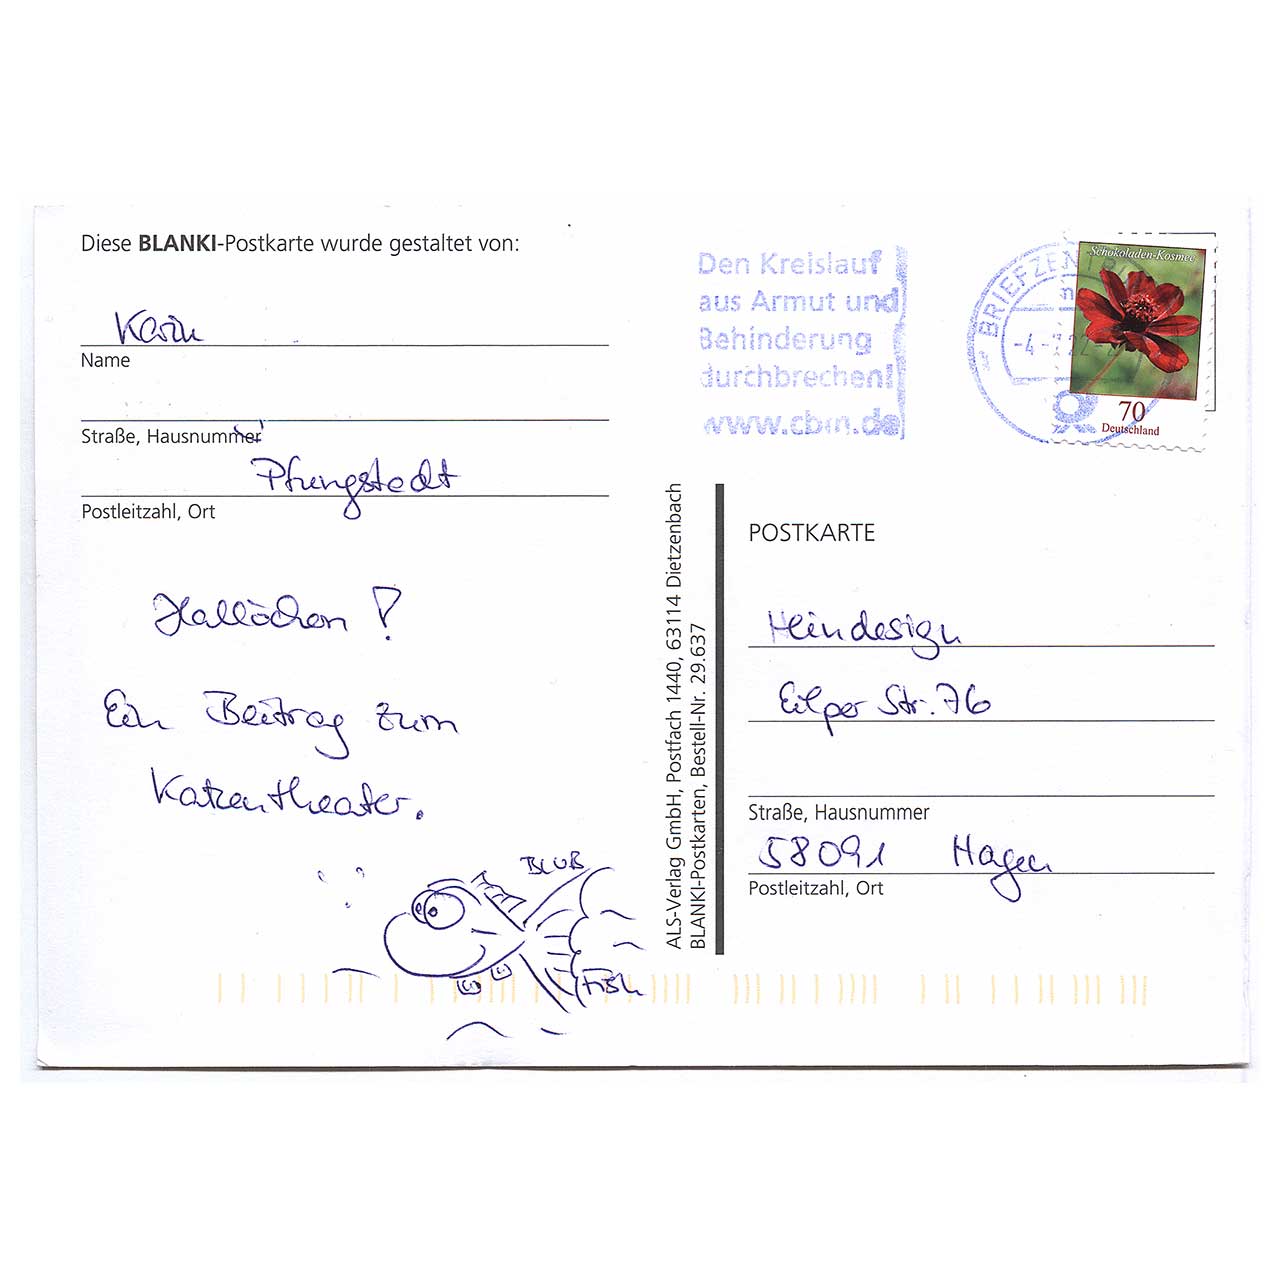 Diese BLANKI-Postkarte wurde gestaltet von:
Karin
Name
Straße, Hausnummer
Pfungstedt
Postleitzahl, Ort
Hallöchen!
Ein Beitrag zum
Katzentheater.
BLUB
Fish
ALS-Verlag GmbH, Postfach 1440, 63114 Dietzenbach
BLANKI-Postkarten, Bestell-Nr. 29.637
Den Kreislauf
aus Armut und
Behinderung
durchbrechen!
www.cbm.de
BRIEFZENTR
Schokoladen-Kosmee
70
Deutschland
POSTKARTE
Heindesign
Eilper Str. 76
Straße, Hausnummer
58091 Hagen
Postleitzahl, Ort